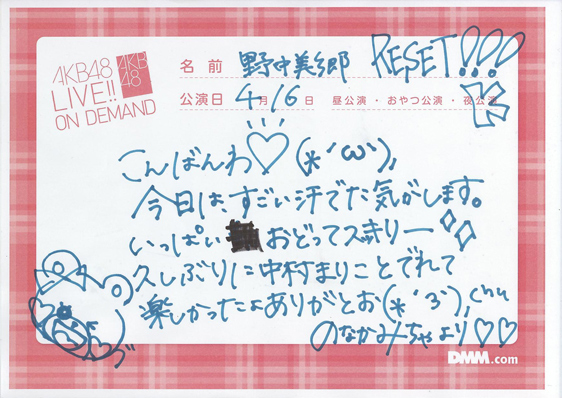 AKB48
LIVE!!
ON DEMAND
AKB
48
名前 野中美郷 RESET!!!!
公演日 4月16日 昼公演・おやつ公演・夜公演
こんばんわ♡(*´ω`),
今日は、すごい汗でた気がします。
いっぱい おどってスッキリー
久しぶりに中村まりことでれて
楽しかったよありがとお(*´3`),
のなかみーちゃより♡♡
DMM.com